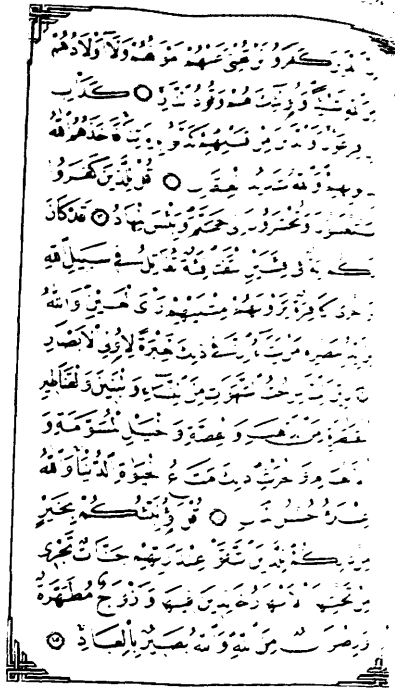 الذين كفروا لن تغني عنهم أموالهم ولا أولادهم
من الله شيئا وأولئك هم وقود النار كدأب
فرعون والذين من قبلهم كذبوا بآياتنا فأخذهم الله
بذنوبهم والله شديد العقاب قل للذين كفروا
ستغلبون وتحشرون إلى جهنم وبئس المهاد قد كان
لكم آية في فئتين التقتا فئة تقاتل في سبيل الله
وأخرى كافرة يرونهم مثليهم رأي العين والله
يؤيد بنصره من يشاء إن في ذلك لعبرة لأولي الأبصار
زين للناس حب الشهوات من النساء والبنين والقناطير
المقنطرة من الذهب والفضة والخيل المسومة و
الأنعام والحرث ذلك متاع الحياة الدنيا والله
عنده حسن المآب قل أؤنبئكم بخير
من ذلكم للذين اتقوا عند ربهم جنات تجري
من تحتها الأنهار خالدين فيها وأزواج مطهرة
ورضوان من الله والله بصير بالعباد ١٥